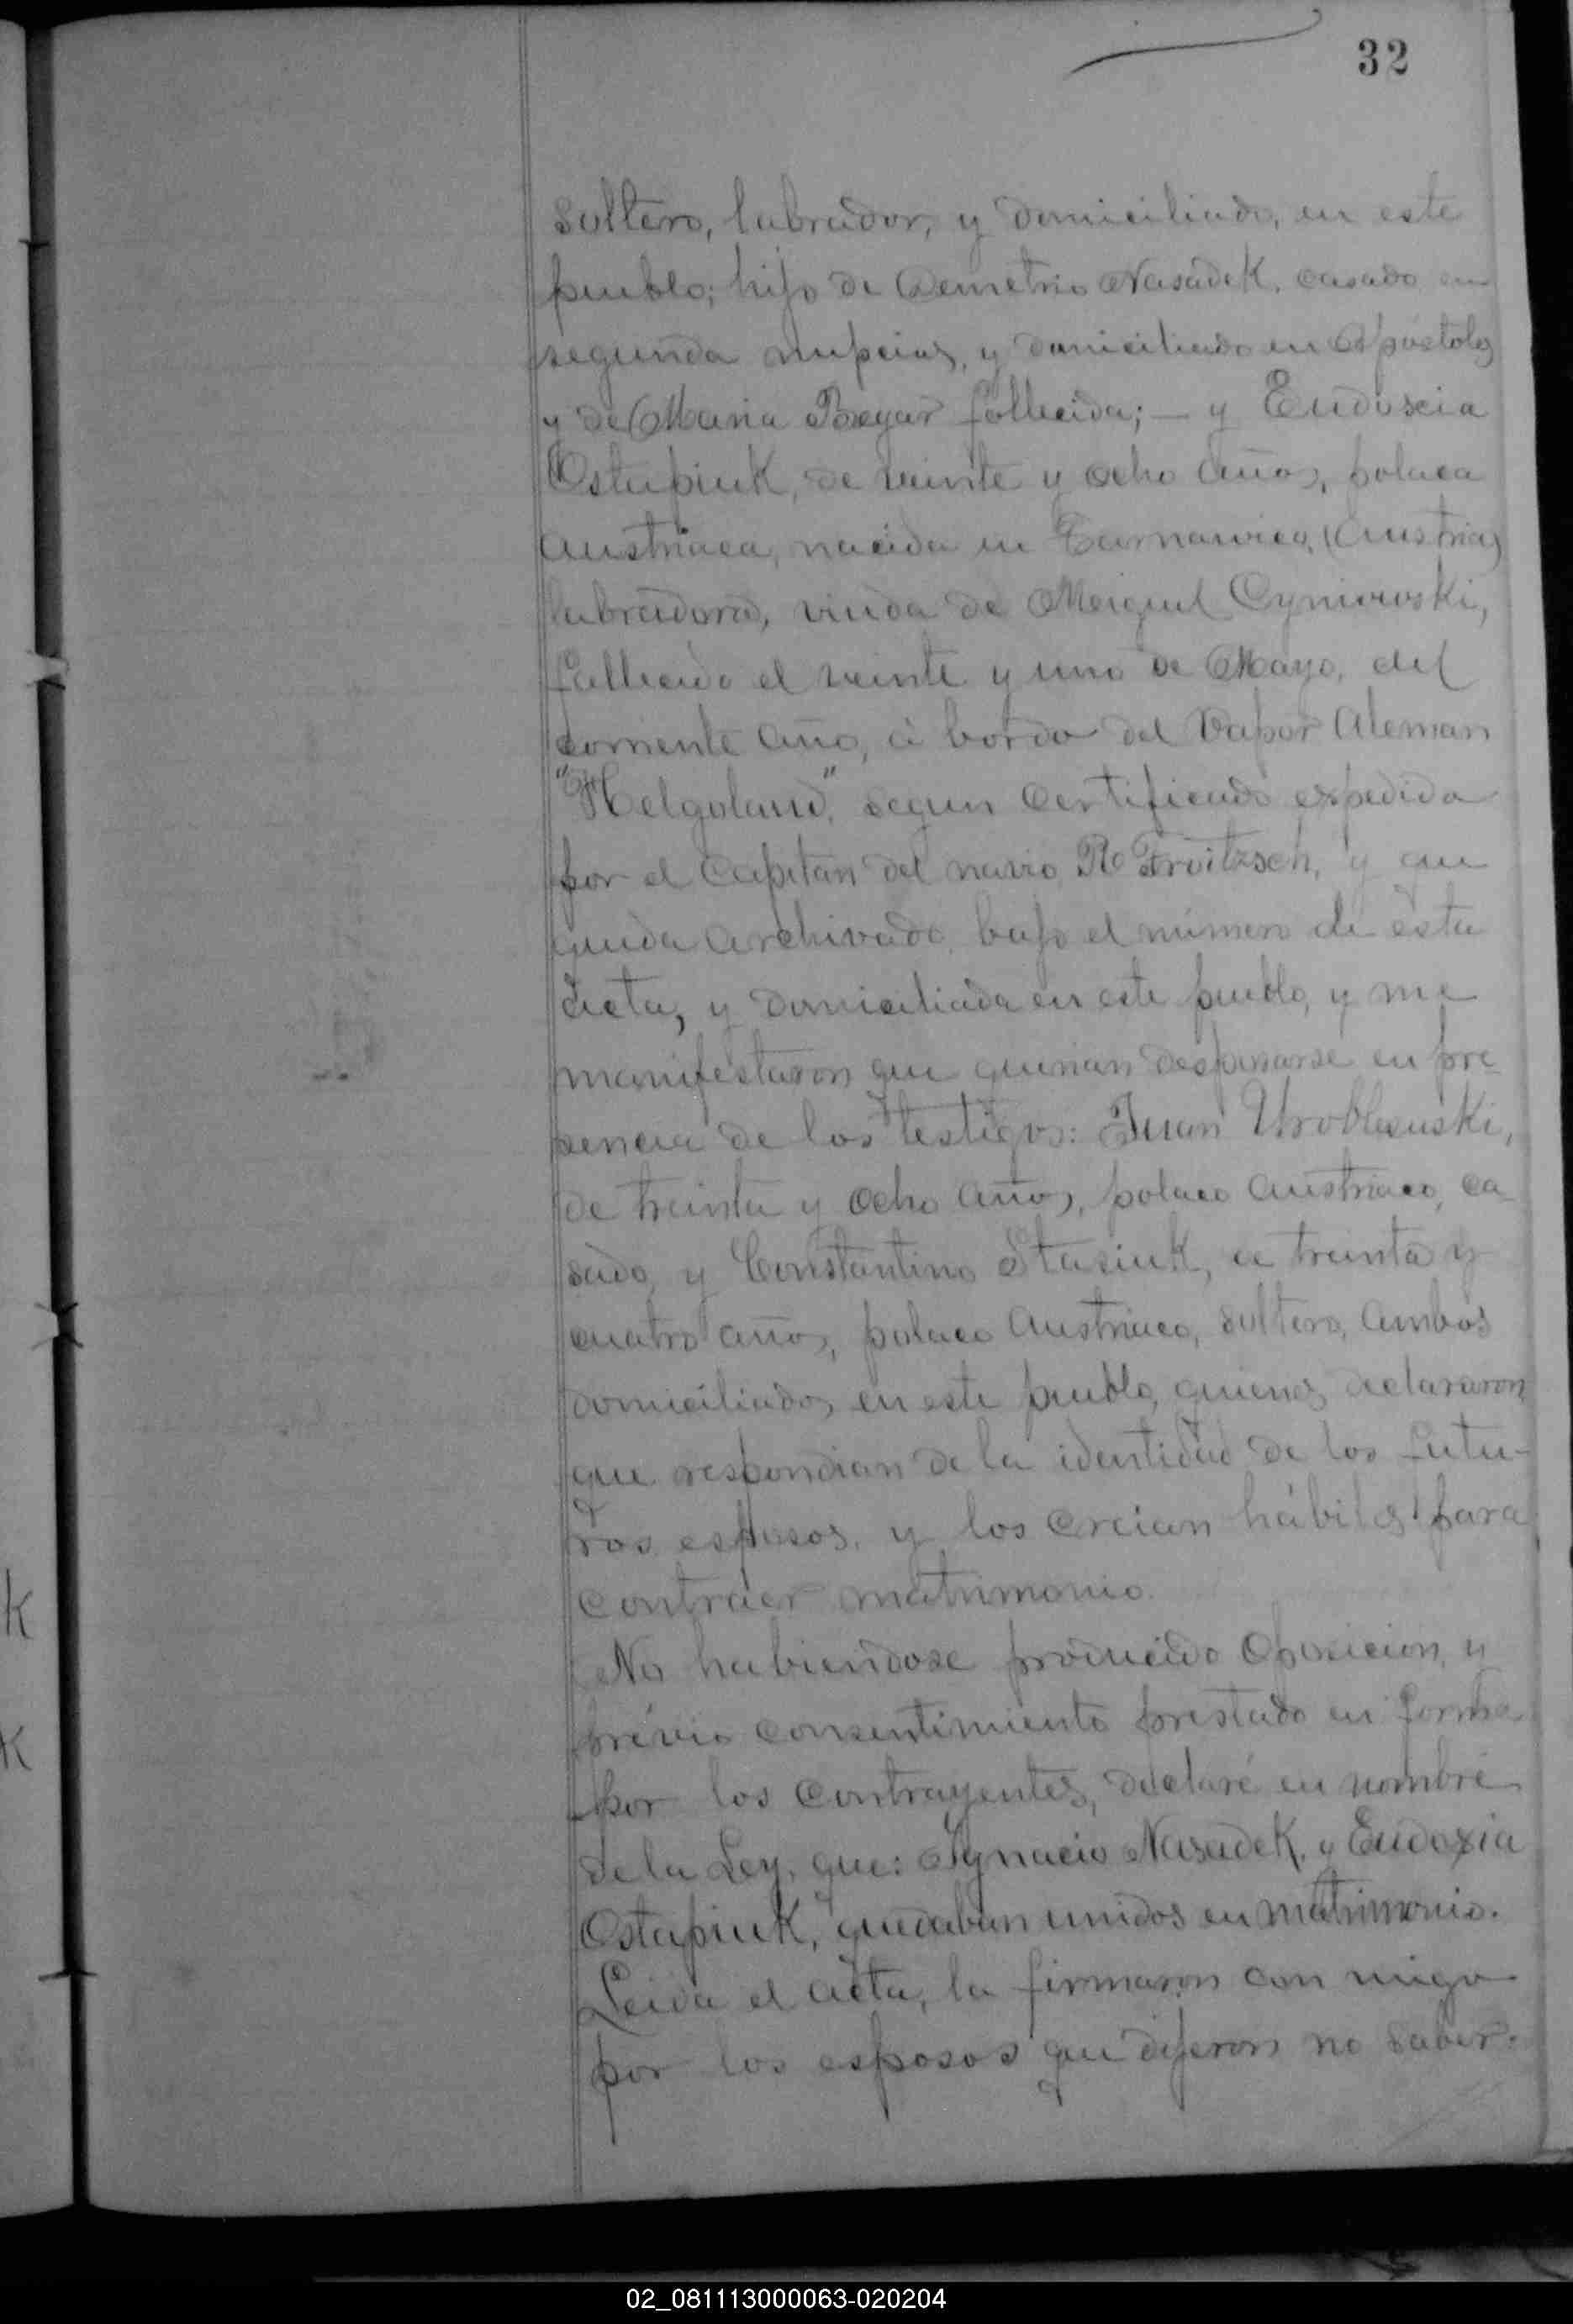 32
soltero, labrador, y domiciliado, en este
pueblo; hijo de Demetrio Nasadek, casado en
segunda nupcias, y domiciliado en Apóstoles
y de Maria Bregar fallecida; — y Eudoscia
Ostapiuk, de veinte y ocho años, polaca
austriaca, nacida en Tarnawica, (Austria)
labradora, viuda de Meiguel Cyniowski,
fallecido el veinte y uno de Mayo, del
corriente año, á bordo del vapor Aleman
"Helgoland", segun certificado expedido
por el Capitan del navio R Troitzsch, y que
queda archivado, bajo el número de esta
acta, y domiciliada en este pueblo, y me
manifestaron que querian desposarse en pre-
sencia de los testigos: Juan Uroblesuski,
de treinta y ocho años, polaco austriaco, ca-
sado, y Constantino Stasiuk, de treinta y
cuatro años, polaco austriaco, soltero, ambos
domiciliados en este pueblo, quienes declararon
que respondian de la identidad de los futu-
ros esposos, y los creian hábiles para
contraer matrimonio.
No habiendose producido oposicion, y
prévio consentimiento prestado en forma
por los contrayentes, declaré en nombre
de la Ley, que: Ygnacio Nasadek, y Eudoxia
Ostapiuk, quedaban unidos en matrimonio.
Leida el acta, la firmaron con migo
por los esposos que dijeron no saber.
k
k
02_081113000063-020204